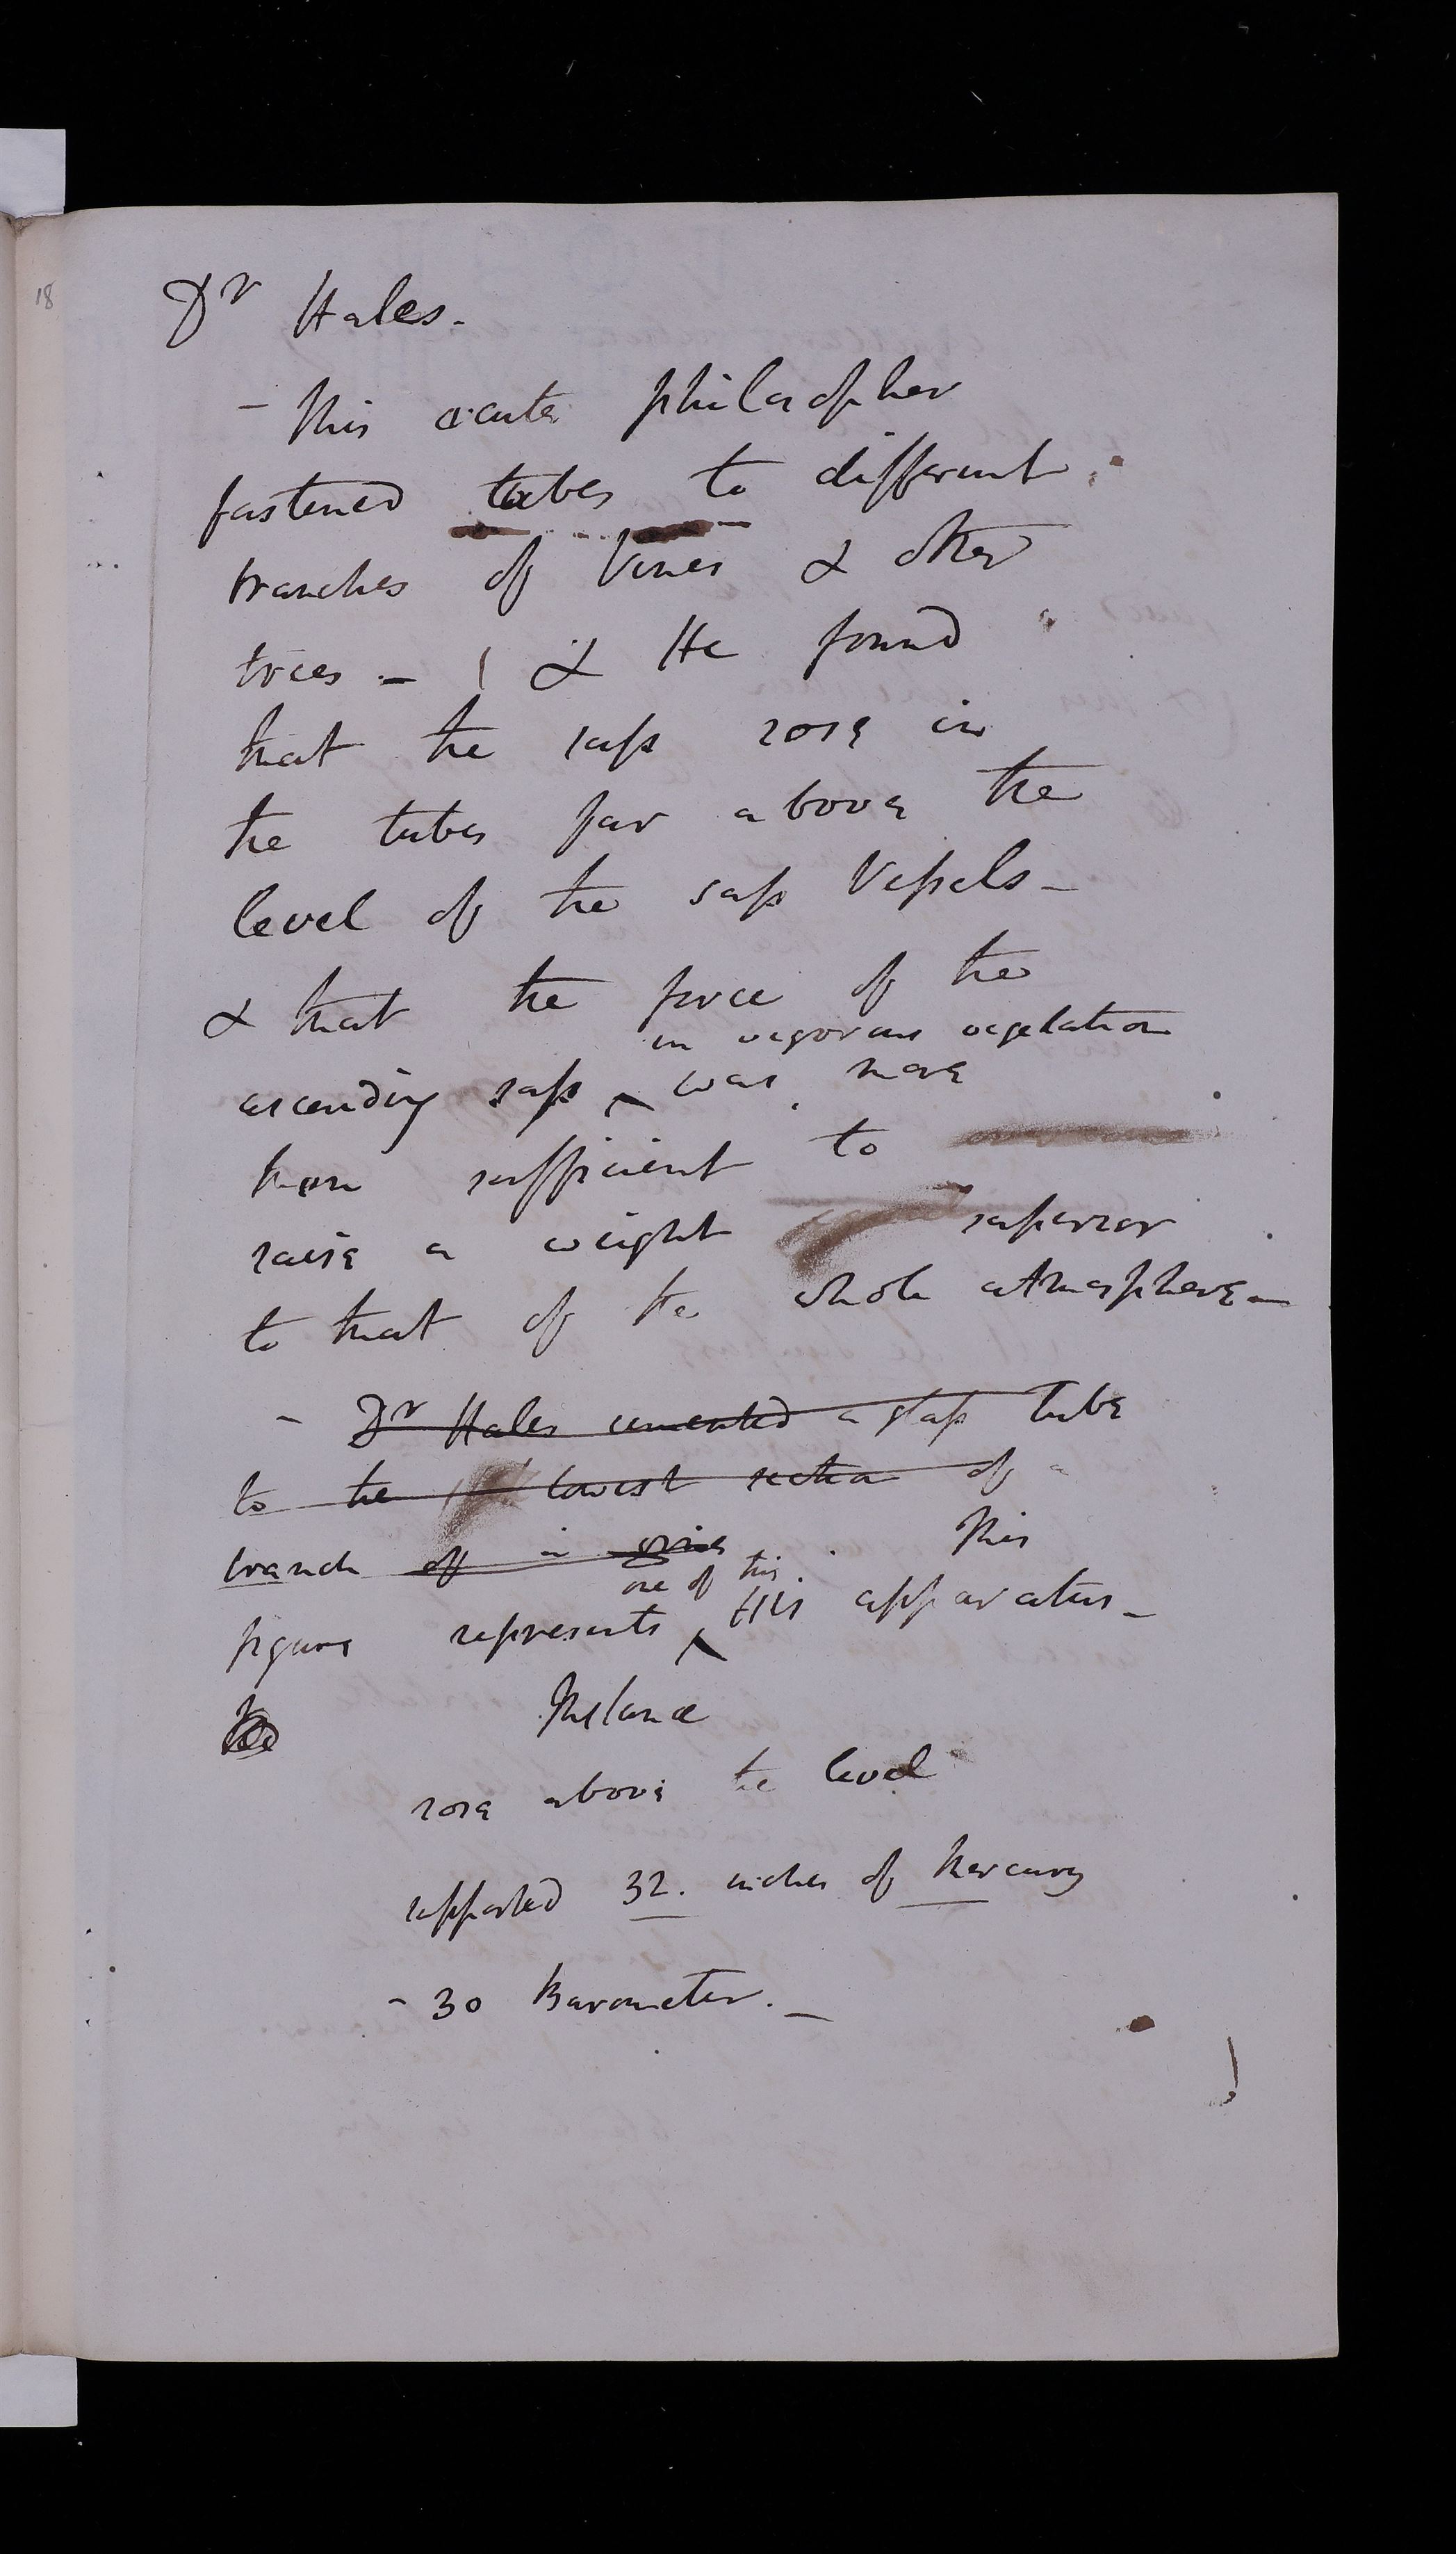 18
Dr Hales.
- This acute philosopher
fastened tubes to different
branches of Vines & other
trees - & He found
that the sap rose in
the tubes far above the
level of the sap Vessels -
& that the force of the
in vigorous vegetation
ascending sap ^ was more
than sufficient to
raise a weight superior
to that of the whole atmosphere -
- Dr Hales cemented a glass tube
to the lowest section of a
branch of a vine. This
one of this
figure represents ^ his apparatus -
rose above the level
supported 32. inches of Mercury
- 30 Barometer. -